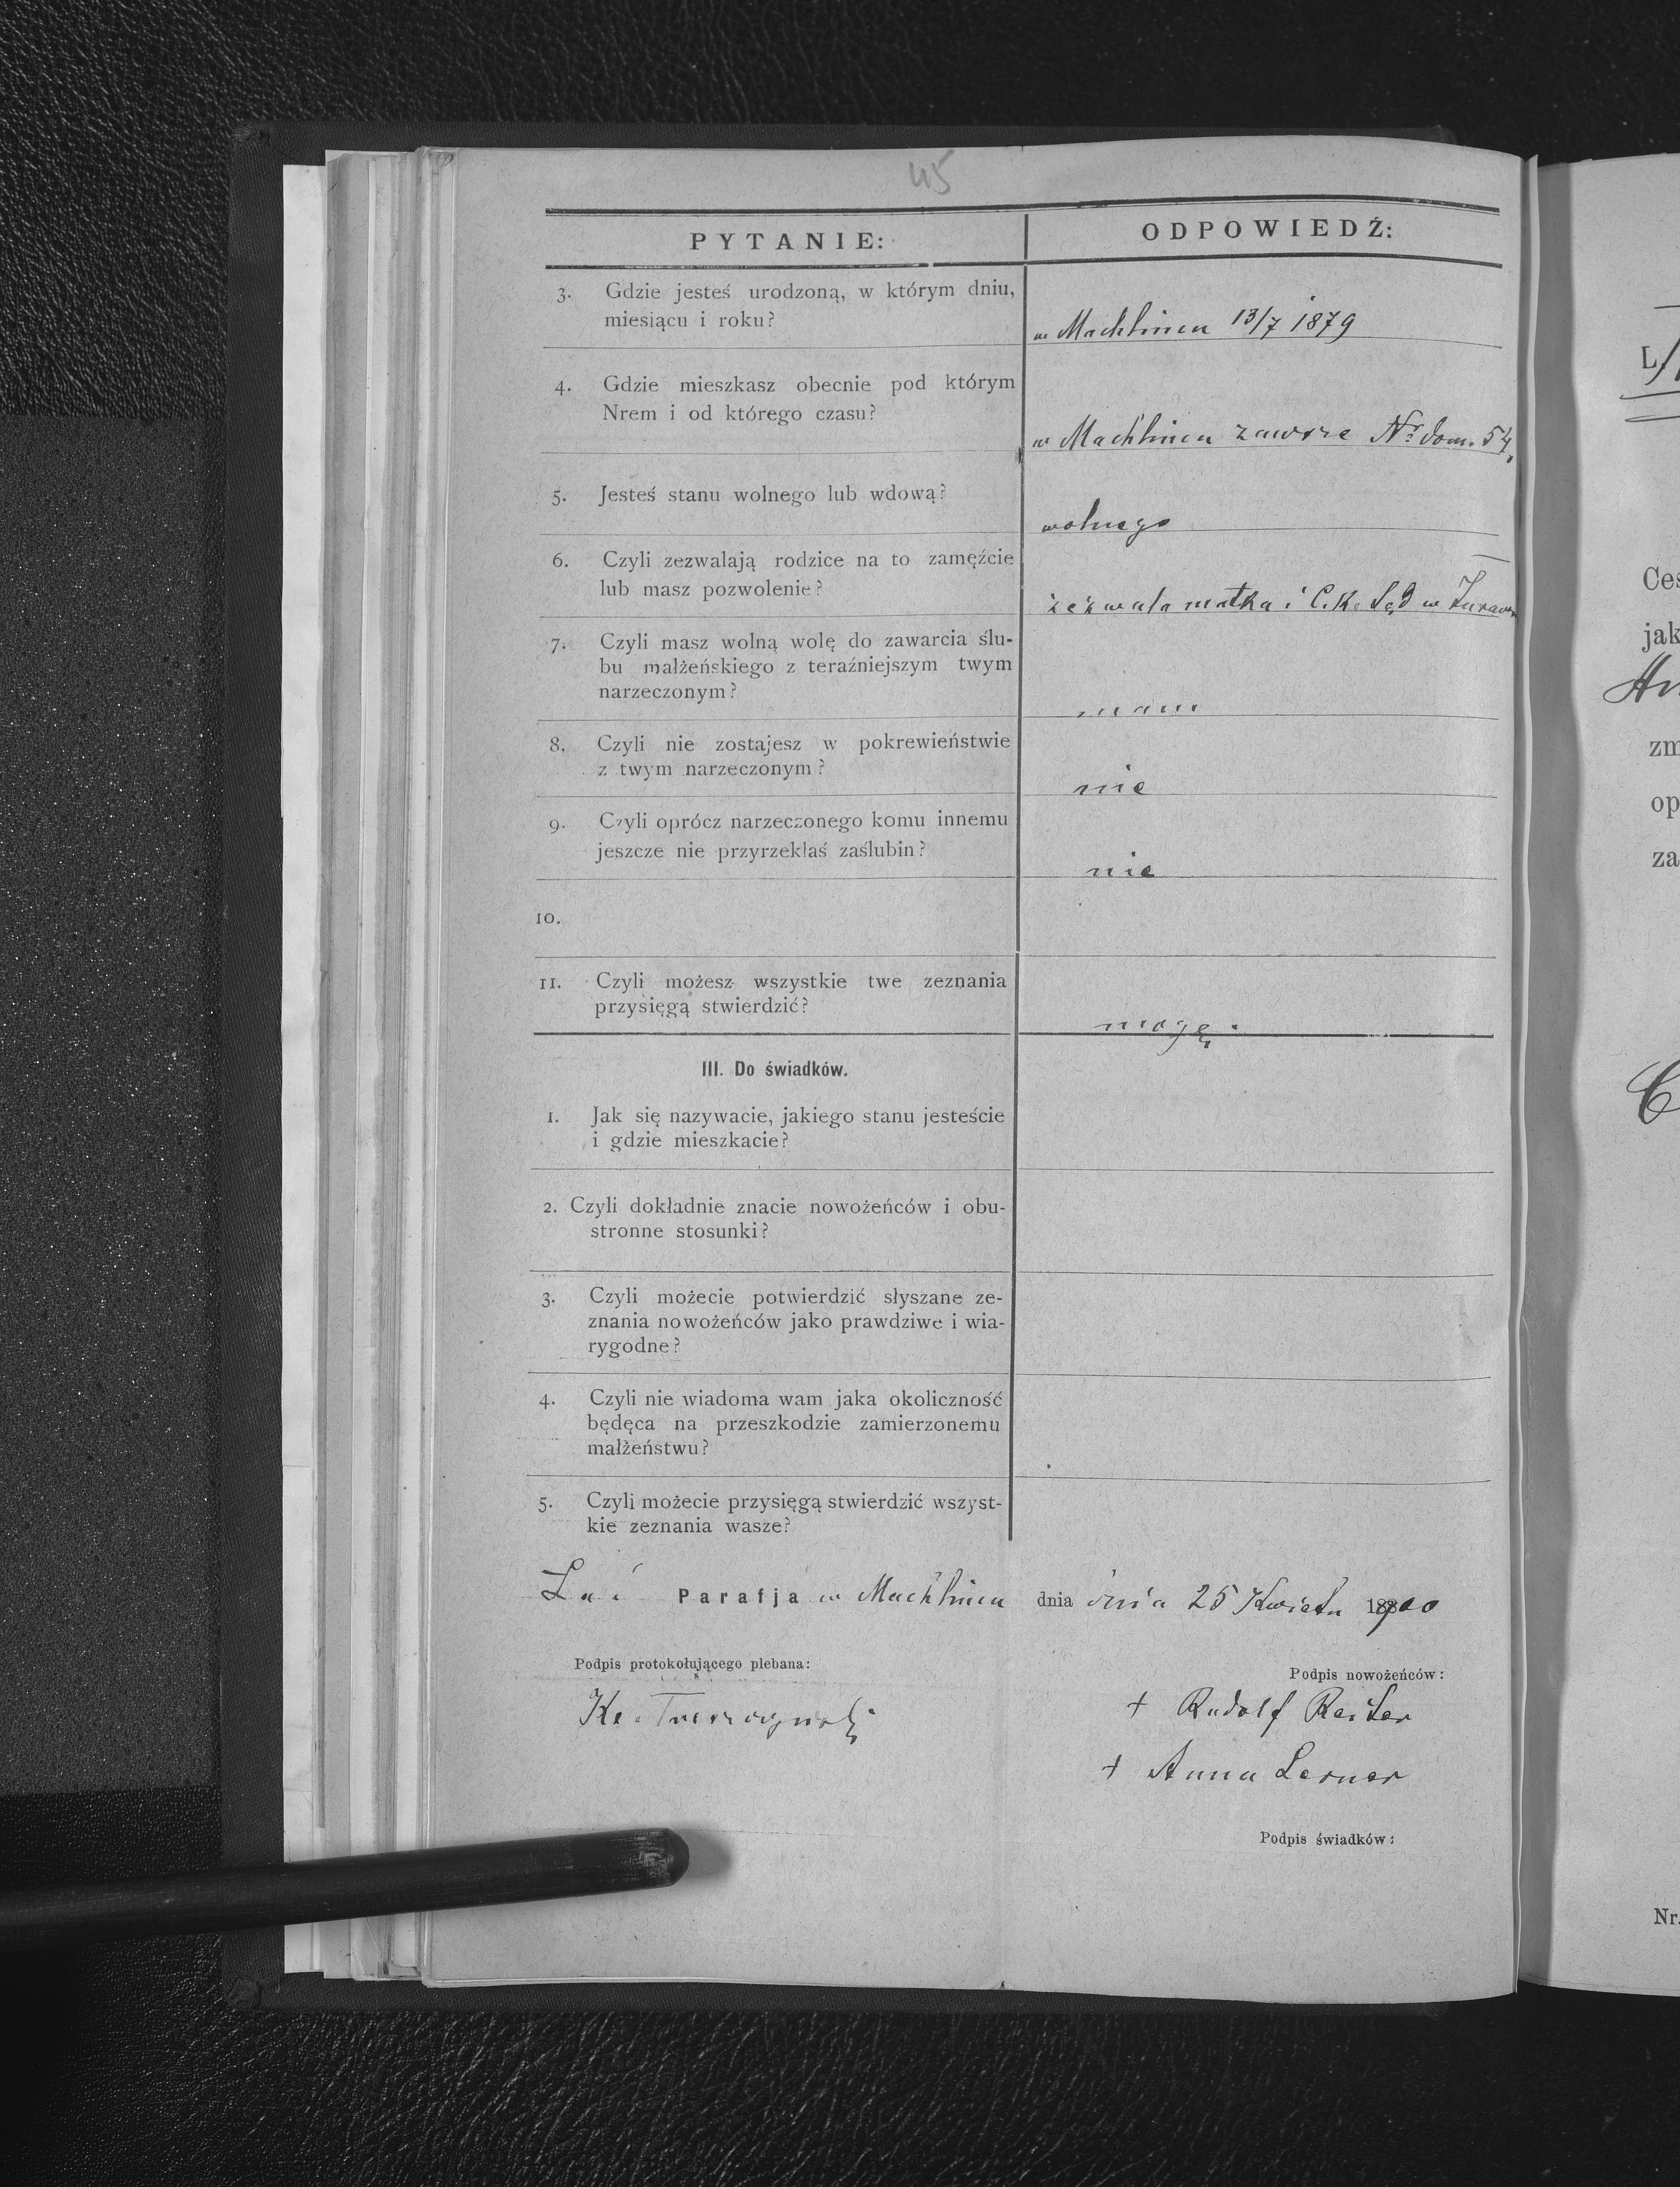 45
PYTANIE:
ODPOWIEDŹ:
3. Gdzie jesteś urodzoną, w którym dniu,
miesiącu i roku?
w Machlińcu 13/7 1879
4. Gdzie mieszkasz obecnie pod którym
Nrem i od którego czasu?
w Machlińcu zawsze Nr dom. 54,
5. Jesteś stanu wolnego lub wdową?
wolnego
6. Czyli zezwalają rodzice na to zamęźcie
lub masz pozwolenie?
zezwala matka i C. K. Sąd w
7. Czyli masz wolną wolę do zawarcia ślu-
bu małżeńskiego z teraźniejszym twym
narzeczonym?
mam
8. Czyli nie zostajesz w pokrewieństwie
z twym narzeczonym?
nie
9. Czyli oprócz narzeczonego komu innemu
jeszcze nie przyrzekłaś zaślubin?
nie
10.
11. Czyli możesz wszystkie twe zeznania
przysięgą stwierdzić?
mogę.
III. Do świadków.
1. Jak się nazywacie, jakiego stanu jesteście
i gdzie mieszkacie?
2. Czyli dokładnie znacie nowożeńców i obu-
stronne stosunki?
3. Czyli możecie potwierdzić słyszane ze-
znania nowożeńców jako prawdziwe i wia-
rygodne?
4. Czyli nie wiadoma wam jaka okoliczność
będęca na przeszkodzie zamierzonemu
małżeństwu?
5. Czyli możecie przysięgą stwierdzić wszyst-
kie zeznania wasze?
Parafja w Machlińcu dnia dnia 25 Kwietn 1900
Podpis protokołującego plebana:
Podpis nowożeńców:
+ Rudolf Reiter
+ Anna Lerner
Podpis świadków:
L/
Ces
jak
An
zm
op
za
C
Nr.